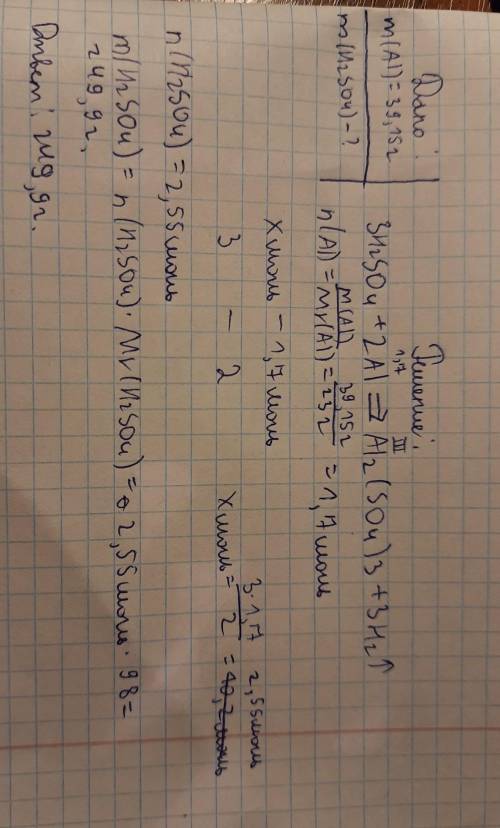 Дано:
m(Al)=39,15г
m(H2SO4)-?
Решение:
1,17 III
3H2SO4 + 2Al => Al2(SO4)3 + 3H2↑
n(Al) = m(Al)/Mr(Al) = 39,15г/23г = 1,17моль
xмоль – 1,17моль
3 – 2
xмоль = 3·1,17/2 = 40,2моль 2,55моль
n(H2SO4) = 2,55моль
m(H2SO4) = n(H2SO4)·Mr(H2SO4) = 2,55моль·98=
=249,9г.
Ответ: 249,9г.